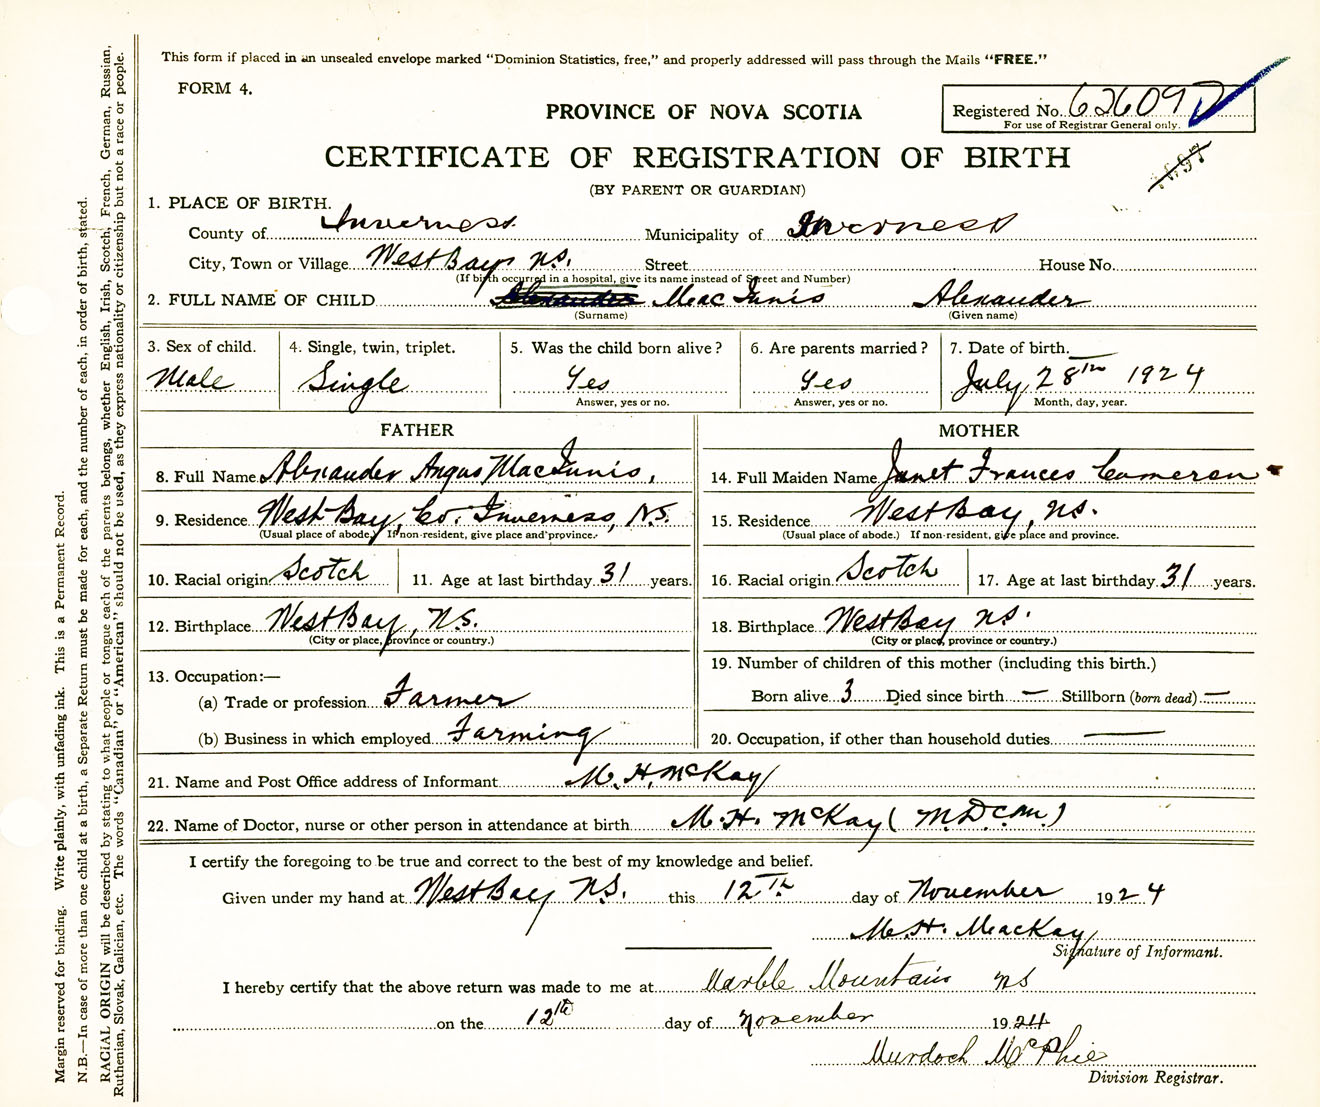 This form if placed in an unsealed envelope marked "Dominion Statistics, free," and properly addressed will pass through the Mails "FREE."
FORM 4.
PROVINCE OF NOVA SCOTIA
Registered No. 62609
For use of Registrar General only.
CERTIFICATE OF REGISTRATION OF BIRTH
(BY PARENT OR GUARDIAN)
1. PLACE OF BIRTH.
County of Inverness Municipality of Inverness
City, Town or Village West Bay N.S. Street House No.
(If birth occurred in a hospital, give its name instead of Street and Number)
2. FULL NAME OF CHILD MacInnis Alexander
(Surname) (Given name)
3. Sex of child. 4. Single, twin, triplet. 5. Was the child born alive? 6. Are parents married? 7. Date of birth.
Male Single Yes Yes July 28th 1924
Answer, yes or no. Answer, yes or no. Month, day, year.
FATHER
8. Full Name Alexander Angus MacInnis,
9. Residence West Bay, Co. Inverness, N.S.
(Usual place of abode.) If non-resident, give place and province.
10. Racial origin Scotch 11. Age at last birthday 31 years.
12. Birthplace West Bay, N.S.
(City or place, province or country.)
13. Occupation:—
(a) Trade or profession Farmer
(b) Business in which employed Farming
MOTHER
14. Full Maiden Name Janet Frances Cameron
15. Residence West Bay, N.S.
(Usual place of abode.) If non-resident, give place and province.
16. Racial origin Scotch 17. Age at last birthday 31 years.
18. Birthplace West Bay N.S.
(City or place, province or country.)
19. Number of children of this mother (including this birth.)
Born alive 3 Died since birth — Stillborn (born dead) —
20. Occupation, if other than household duties —
21. Name and Post Office address of Informant M. H. McKay
22. Name of Doctor, nurse or other person in attendance at birth M. H. McKay (M.D.C.M.)
I certify the foregoing to be true and correct to the best of my knowledge and belief.
Given under my hand at West Bay N.S. this 12th day of November 1924
M. H. MacKay
Signature of Informant.
I hereby certify that the above return was made to me at Marble Mountain NS
on the 12th day of November 1924
Murdoch McPhie
Division Registrar.
Margin reserved for binding. Write plainly, with unfading ink. This is a Permanent Record.
N.B.—In case of more than one child at a birth, a Separate Return must be made for each, and the number of each, in order of birth, stated.
RACIAL ORIGIN will be described by stating to what people or tongue each of the parents belongs, whether English, Irish, Scotch, French, German, Russian,
Ruthenian, Slovak, Galician, etc. The words "Canadian" or "American" should not be used, as they express nationality or citizenship but not a race or people.